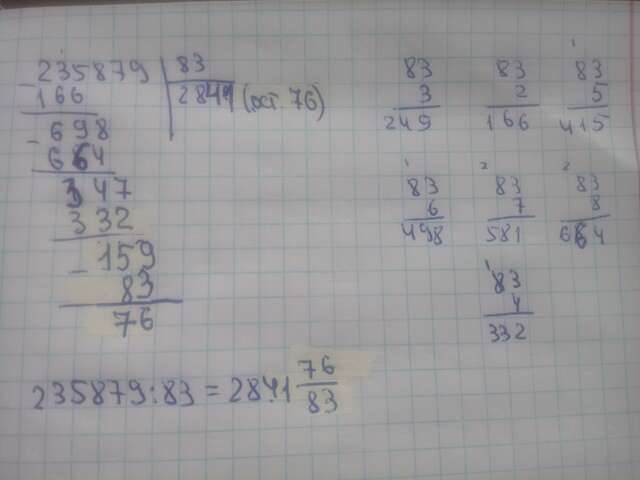 235879 | 83
- 166 2841 (ост. 76)
- 698
664
347
332
- 159
83
76
83 83 83
3 2 5
249 166 415
83 83 83
6 7 8
498 581 664
83
4
332
235879:83 = 2841 76/83